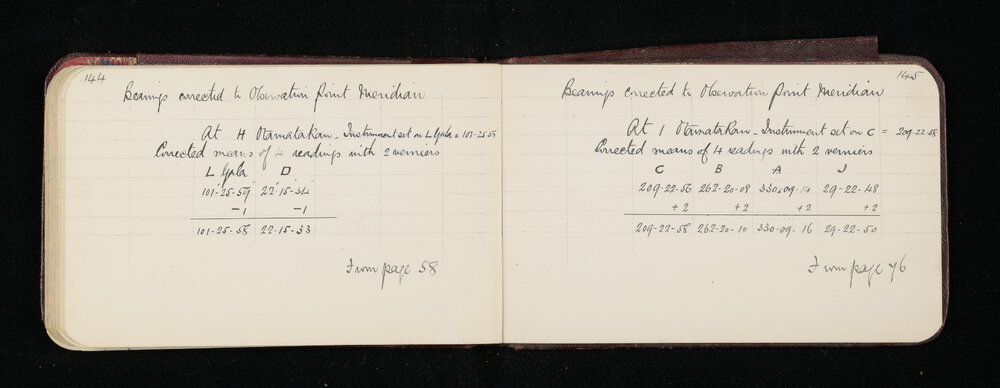 144
Bearings corrected to Observation Point Meridian
At H Otamatakau - Instrument set on L Gala = 101-25-58
Corrected means of 4 readings with 2 verniers
L Gala D
101-25-59 22-15-34
-1 -1
101-25-58 22-15-33
From page 58
145
Bearings corrected to Observation Point Meridian
At I Otamatakau - Instrument set on C = 209-22-58
Corrected means of 4 readings with 2 verniers
C B A J
209-22-56 262-20-08 330-09-14 29-22-48
+2 +2 +2 +2
209-22-58 262-20-10 330-09-16 29-22-50
From page 76